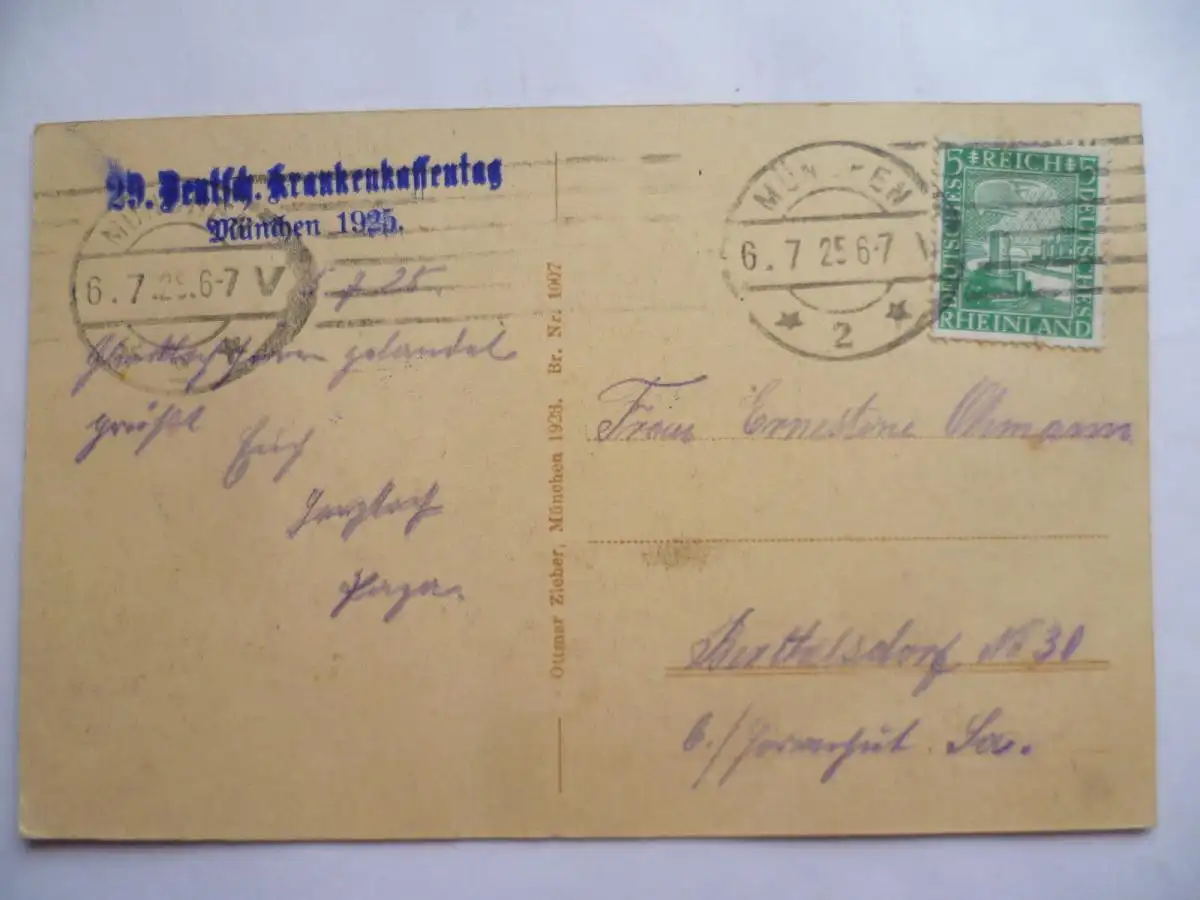 29. Deutsch. Krankenkassentag
München 1925.
MÜNCHEN
6.7.25.6-7 V
5 7 25.
gelandet
grüßt Euch
herzlich
Papa.
Ottmar Zieher, München 1923. Br. Nr. 1007
MÜNCHEN
6.7 25 6-7 V
2
5 REICH 5
DEUTSCHES
DEUTSCHES
RHEINLAND
Frau Ernestine Ohmann
Berthelsdorf No 30
b./ Herrnhut Sa.